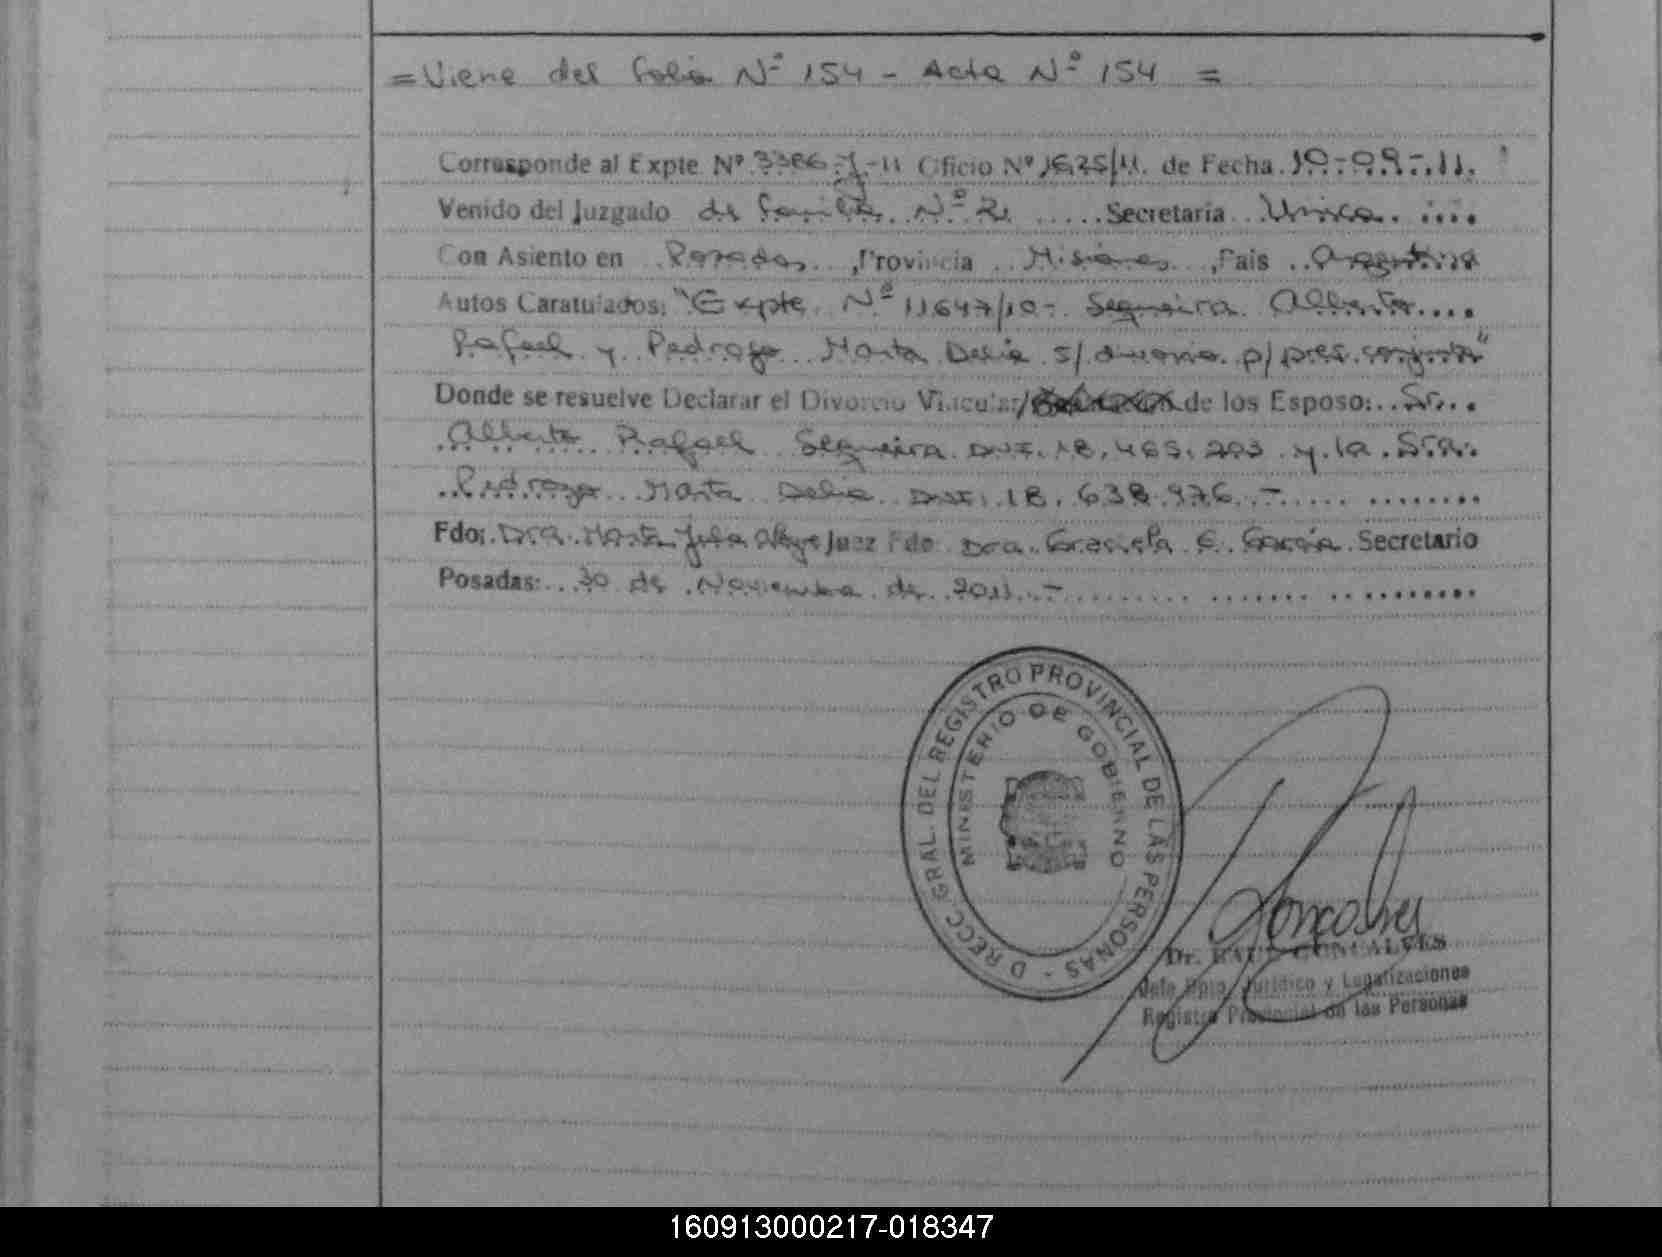 = Viene del folio Nº 154 - Acta Nº 154 =
Corresponde al Expte Nº 3386-J-11 Oficio Nº 1675/11. de Fecha. 19-09-11.
Venido del Juzgado de familia Nº 2. ..... Secretaria.. Unica. ....
Con Asiento en .Posadas..., Provincia ..Misiones..., Pais ..Argentina
Autos Caratulados: "Expte. Nº 11647/10-. Segueira. Alberto....
Rafael y Pedrozo Marta Delia s/ divorcio p/ pres. conjunta"
Donde se resuelve Declarar el Divorcio Vincular/ de los Esposo:..Sr...
Alberto Rafael Segueira DNI. 18.465.203 y la Sra.
Pedrozo Marta Delia DNI. 18.638.976.-
Fdo: Dra. Marta Julia Juez Fdo: Dra. Graciela E. García. Secretario
Posadas:...30 de Noviembre de 2011.-
DIRECC. GRAL. DEL REGISTRO PROVINCIAL DE LAS PERSONAS -
MINISTERIO DE GOBIERNO
Goncalves
Dr. RAUL GONCALVES
Jefe Dpto. Jurídico y Legalizaciones
Registro Provincial de las Personas
160913000217-018347